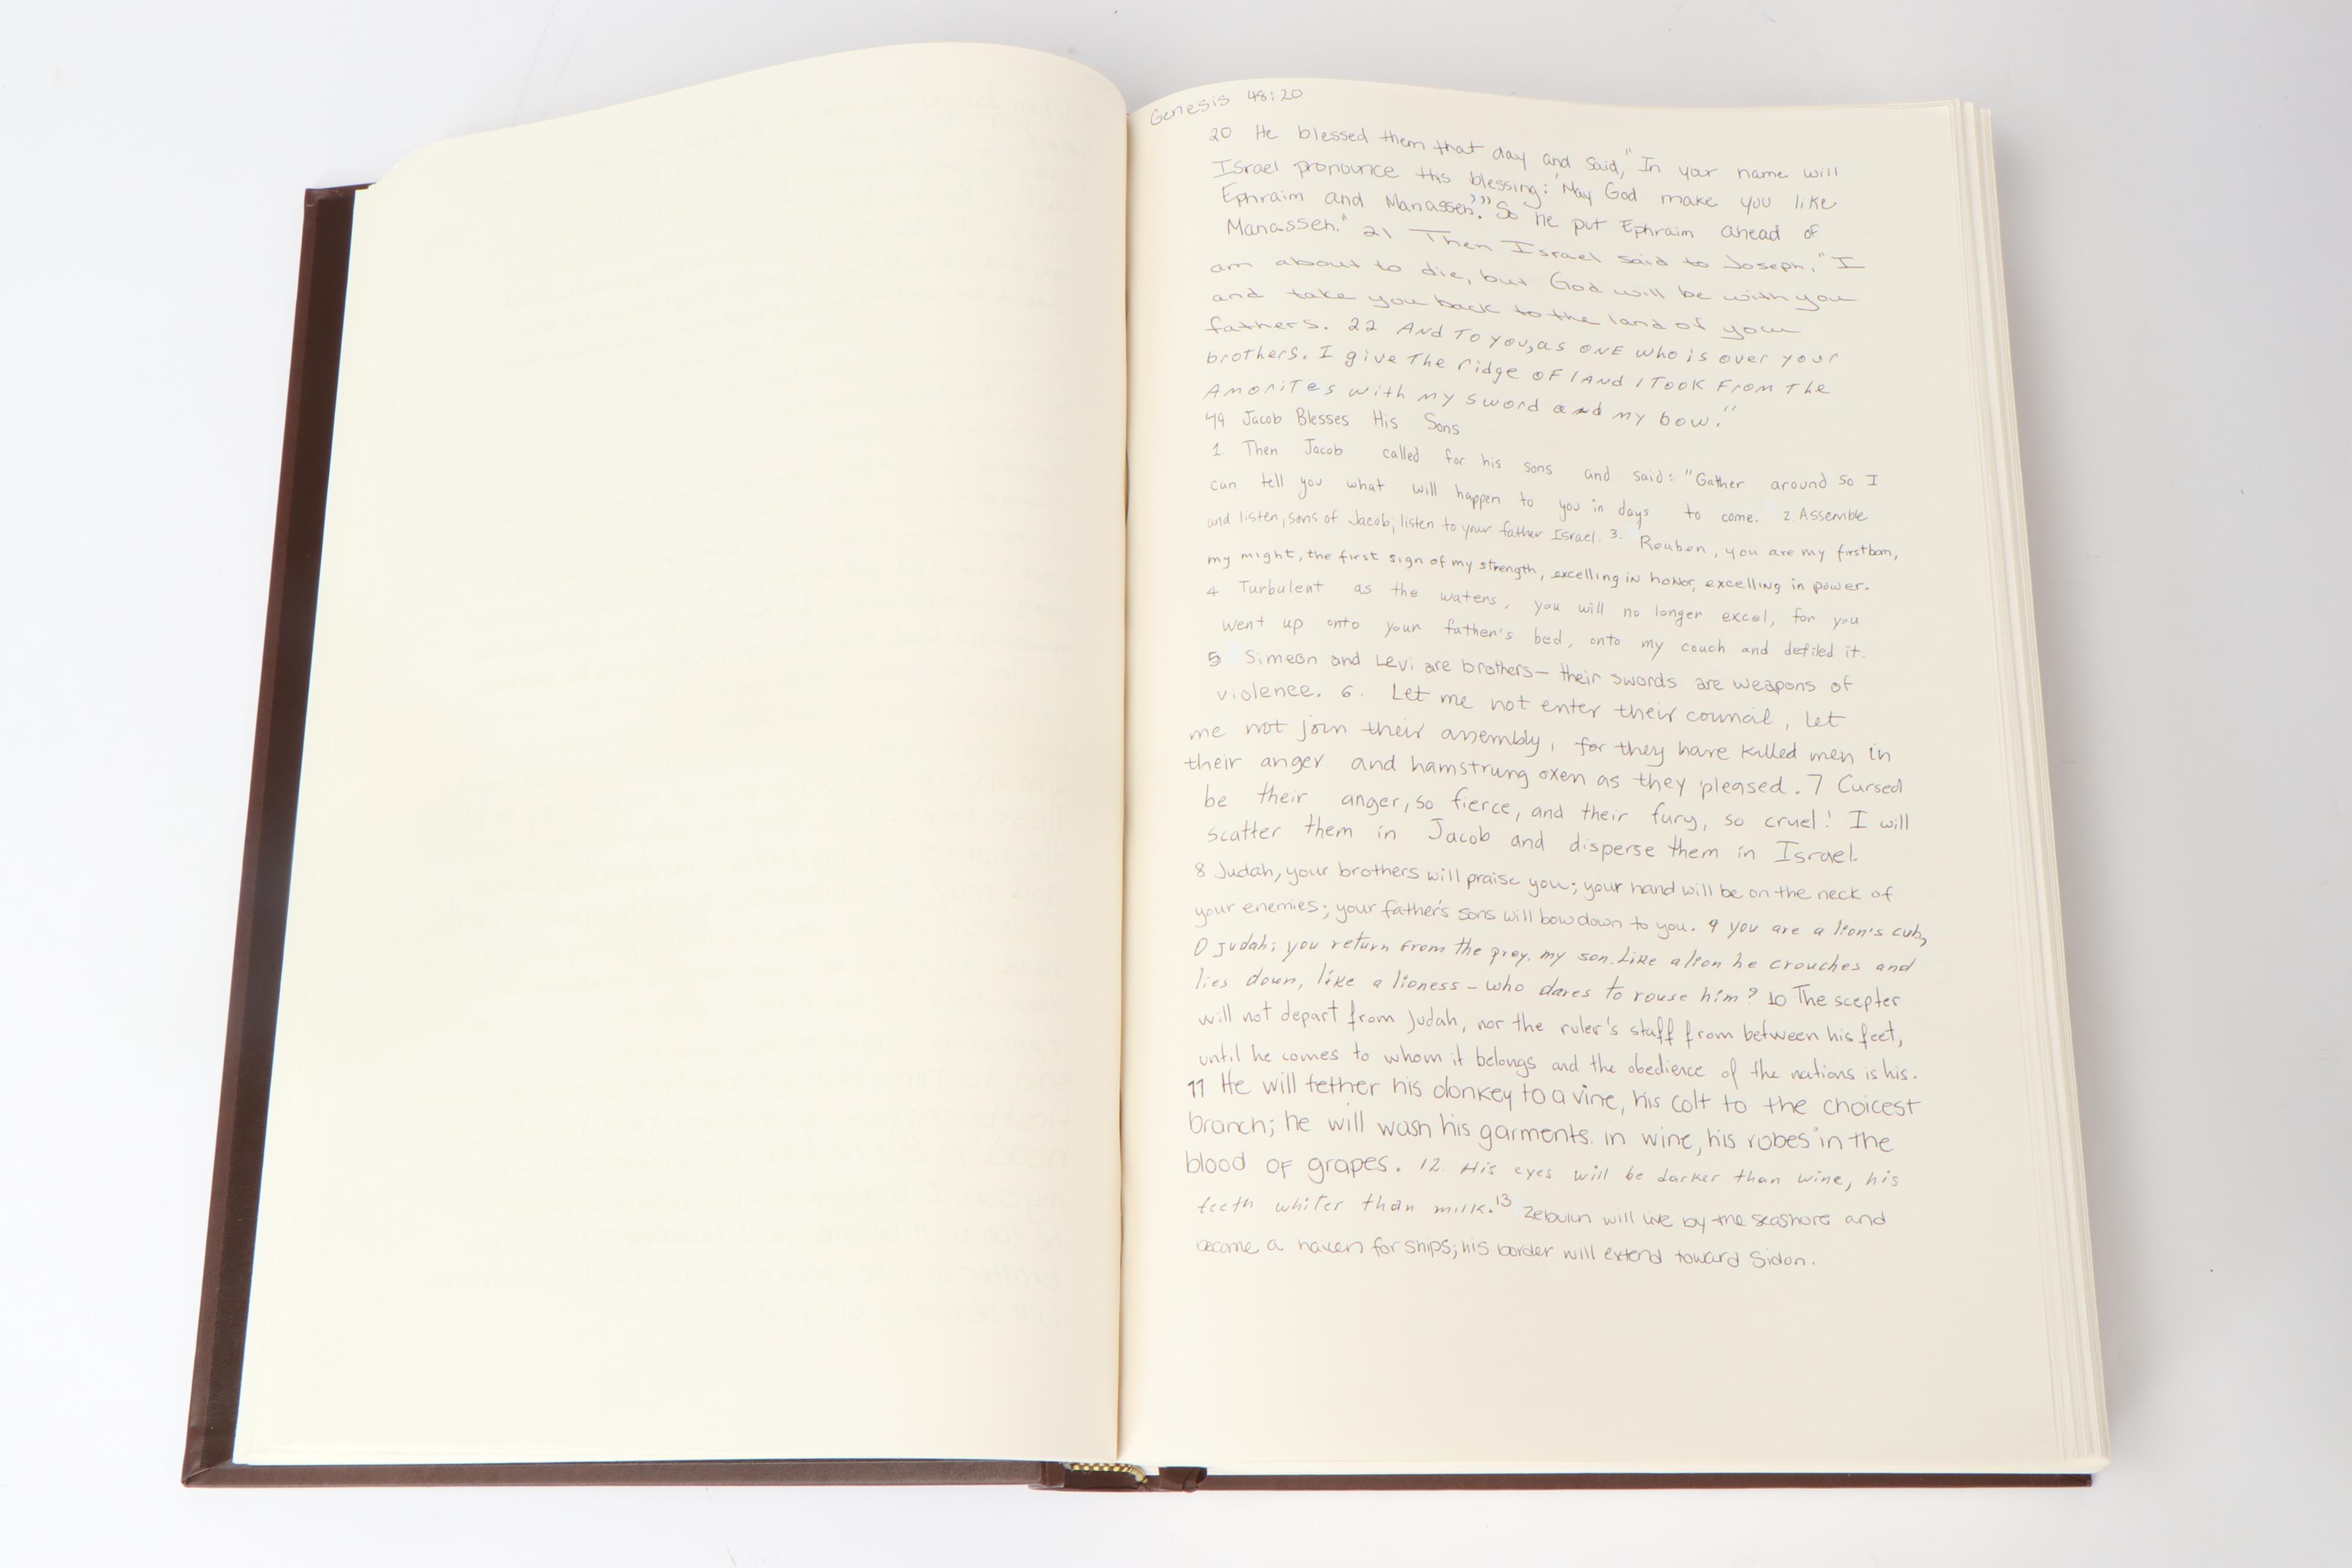 Genesis 48:20
20 He blessed them that day and said, "In your name will
Israel pronounce this blessing: 'May God make you like
Ephraim and Manasseh.'" So he put Ephraim ahead of
Manasseh." 21 Then Israel said to Joseph, "I
am about to die, but God will be with you
and take you back to the land of your
fathers. 22 And to you, as one who is over your
brothers. I give the ridge of land I took from the
Amorites with my sword and my bow."
49 Jacob Blesses His Sons
1. Then Jacob called for his sons and said: "Gather around so I
can tell you what will happen to you in days to come. 2. Assemble
and listen, sons of Jacob; listen to your father Israel. 3. Reuben, you are my firstborn,
my might, the first sign of my strength, excelling in honor, excelling in power.
4 Turbulent as the waters, you will no longer excel, for you
went up onto your father's bed, onto my couch and defiled it.
5 Simeon and Levi are brothers— their swords are weapons of
violence. 6. Let me not enter their council, let
me not join their assembly, for they have killed men in
their anger and hamstrung oxen as they pleased. 7 Cursed
be their anger, so fierce, and their fury, so cruel! I will
scatter them in Jacob and disperse them in Israel.
8 Judah, your brothers will praise you; your hand will be on the neck of
your enemies; your father's sons will bow down to you. 9 you are a lion's cub,
O Judah; you return from the prey, my son. Like a lion he crouches and
lies down, like a lioness - who dares to rouse him? 10 The scepter
will not depart from Judah, nor the ruler's staff from between his feet,
until he comes to whom it belongs and the obedience of the nations is his.
11 He will tether his donkey to a vine, his colt to the choicest
branch; he will wash his garments in wine, his robes in the
blood of grapes. 12. His eyes will be darker than wine, his
teeth whiter than milk. 13 Zebulun will live by the seashore and
become a haven for ships; his border will extend toward Sidon.